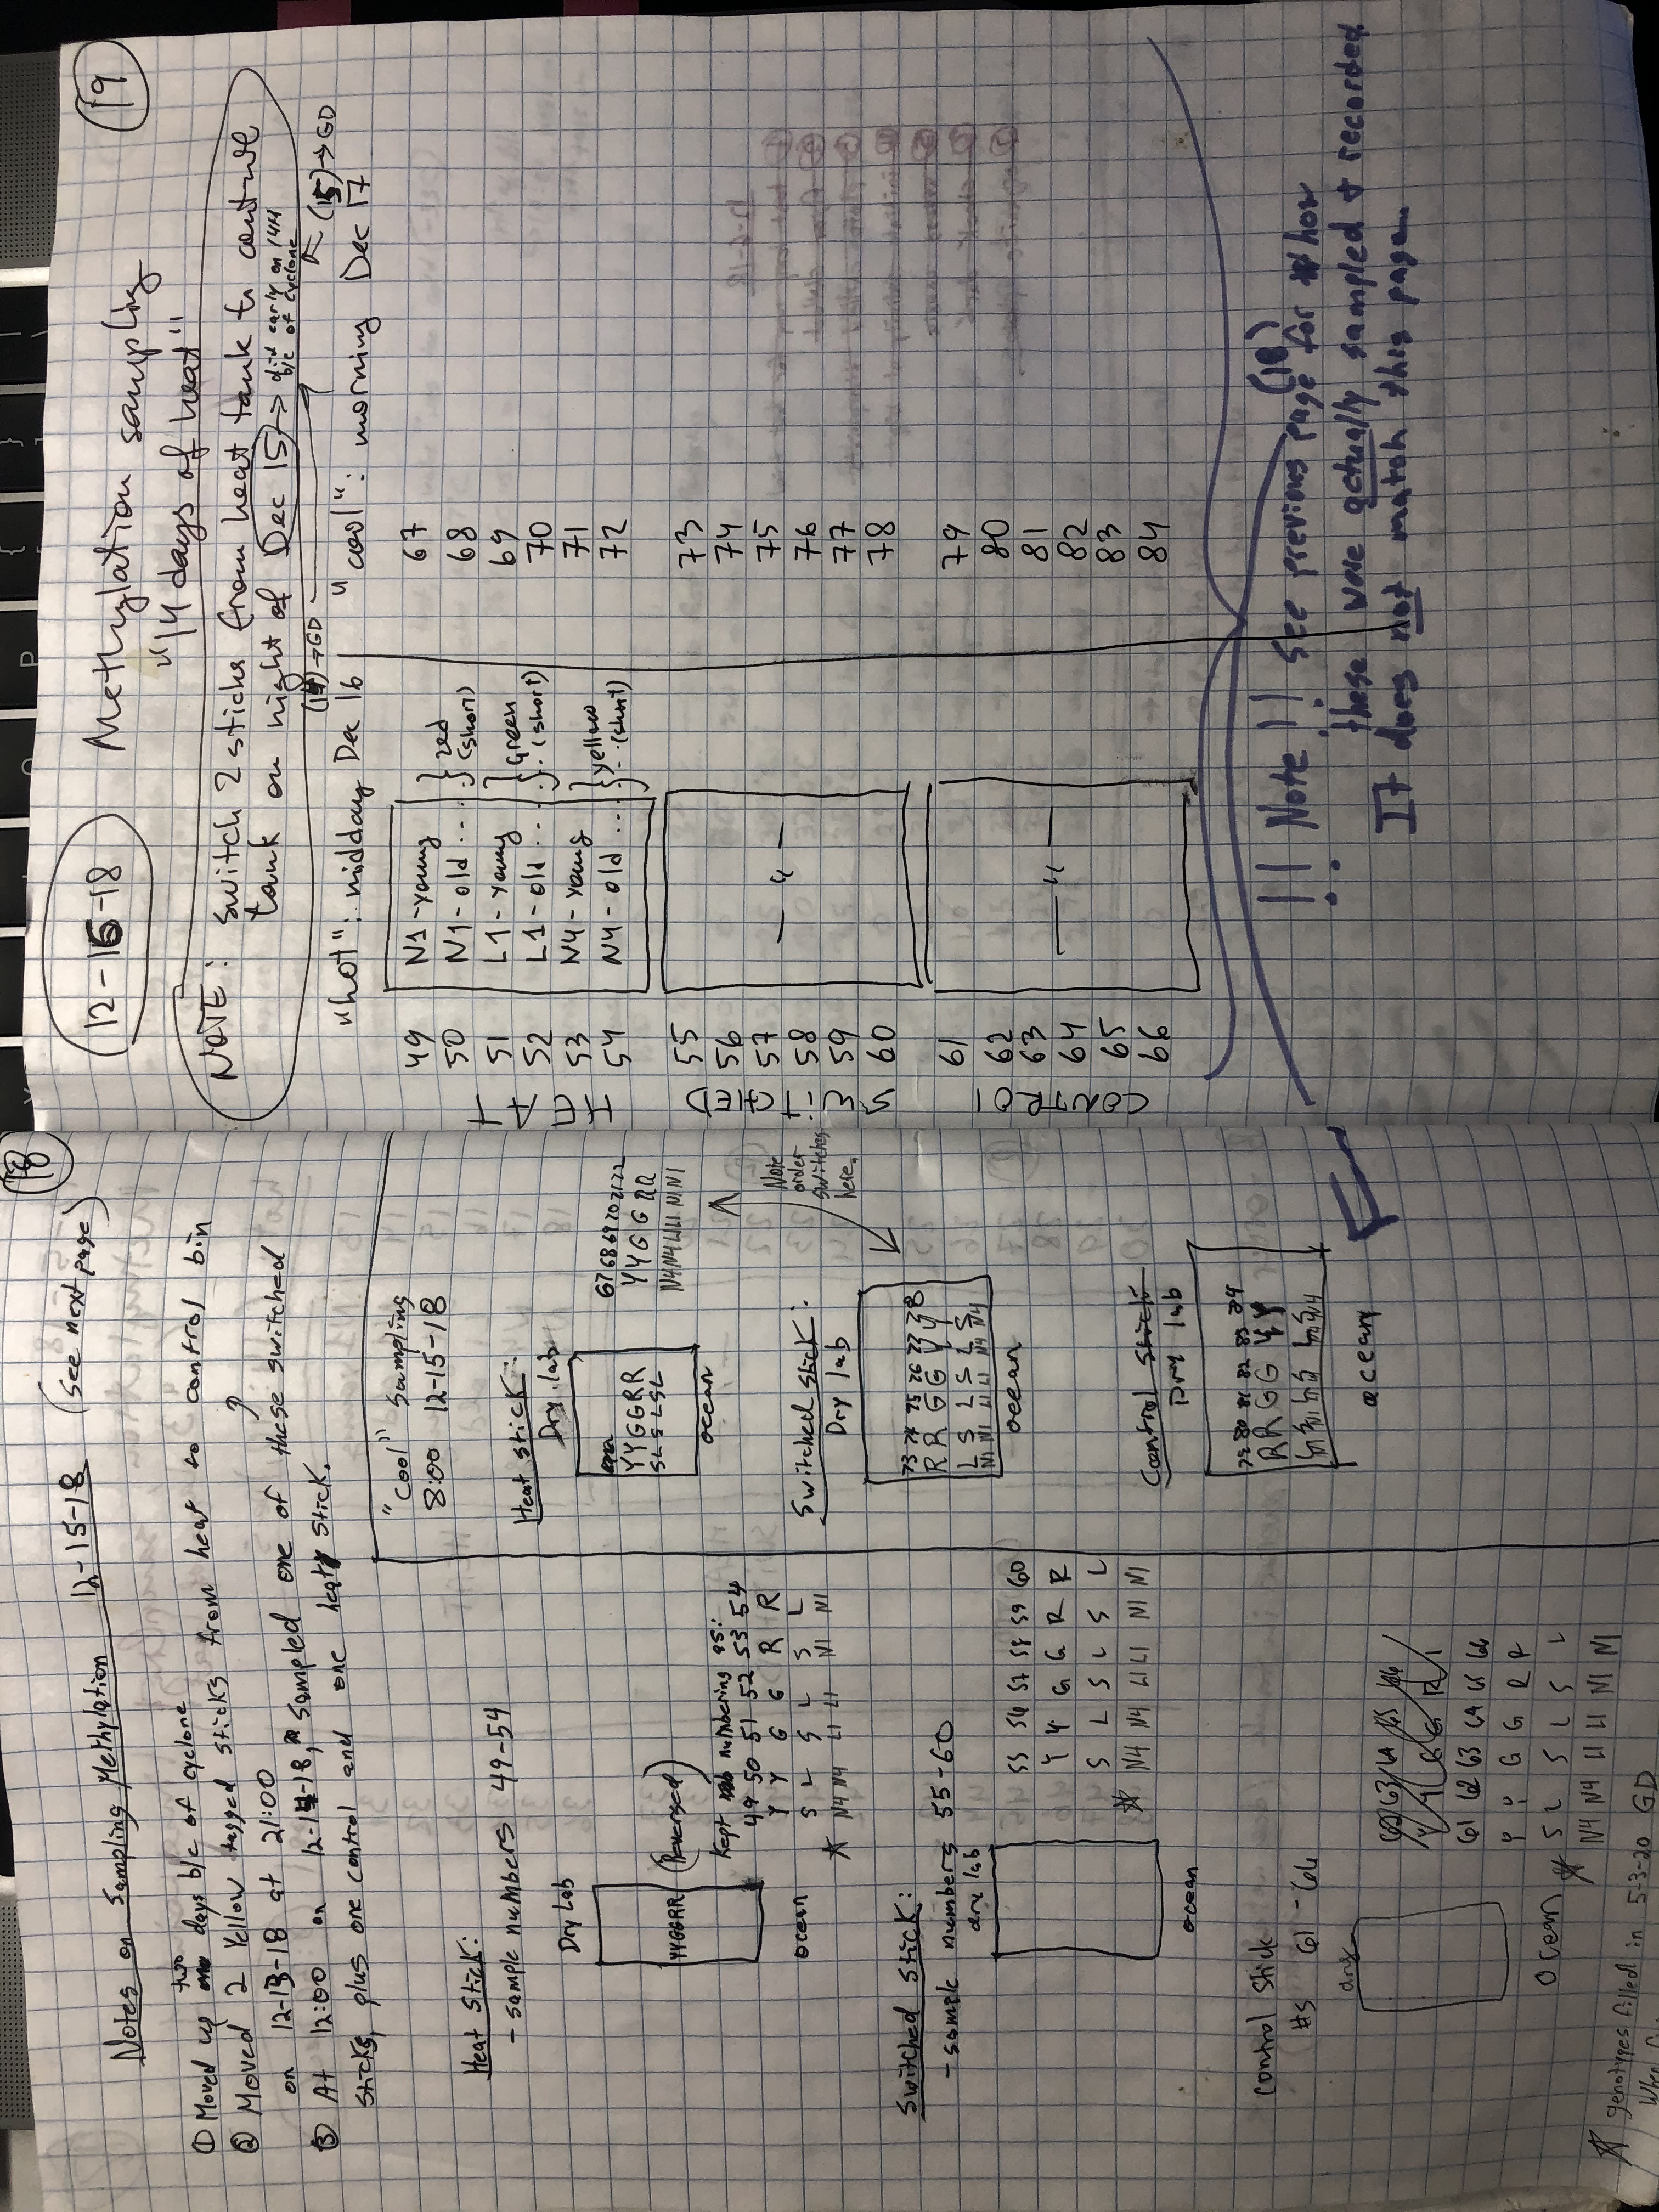 18
Notes on Sampling Methylation 12-15-18 (See next page)
① Moved up two days b/c of cyclone
② Moved 2 Yellow tagged sticks from heat to control bin
on 12-13-18 at 21:00
③ At 12:00 on 12-14-18, sampled one of these switched
sticks, plus one control and one heat stick.
Heat Stick:
- sample numbers 49-54
Dry Lab
YYGGRR
ocean
(Reversed)
Kept numbering as:
49 50 51 52 53 54
Y Y G G R R
S L S L S L
* N4 N4 L1 L1 N1 N1
Switched Stick:
- sample numbers 55-60
dry lab
ocean
55 56 57 58 59 60
Y Y G G R R
S L S L S L
* N4 N4 L1 L1 N1 N1
Control Stick
#s 61 - 66
dry
Ocean
61 62 63 64 65 66
Y Y G G R R
* S L S L S L
N4 N4 L1 L1 N1 N1
* genotypes filled in 5-3-20 GD
"Cool" Sampling
8:00 12-15-18
Heat Stick:
Dry lab
YYGGRR
SLSLSL
ocean
67 68 69 70 71 72
Y Y G G R R
N4 N4 L1 L1 N1 N1
Note
order
switches
here.
Switched Stick:
Dry lab
73 74 75 76 77 78
R R G G Y Y
L S L S L S
N1 N1 L1 L1 N4 N4
ocean
Control Stick
Dry lab
79 80 81 82 83 84
R R G G Y Y
ocean
19
12-15-18 Methylation sampling
"14 days of heat"
NOTE: Switch 2 sticks from heat tank to control
tank on night of Dec 15 → did early on 14th
b/c of cyclone
(14)→GD
(15)→GD
"hot": midday Dec 16 "cool": morning Dec 17
HEAT
49 N1-young } red 67
50 N1-old ... (short) 68
51 L1-young } Green 69
52 L1-old ... (short) 70
53 N4-young } yellow 71
54 N4-old ... (short) 72
SWITCHED
55 73
56 74
57 — " — 75
58 76
59 77
60 78
CONTROL
61 79
62 80
63 — " — 81
64 82
65 83
66 84
!! Note !! See previous page (18) for how
these were actually sampled + recorded
It does not match this page.